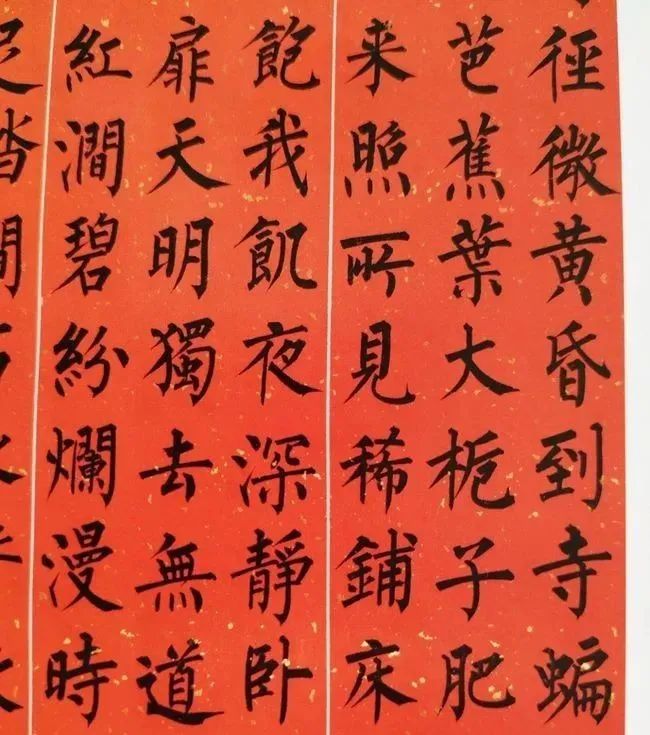 徑微黄昏到寺蝙
芭蕉葉大栀子肥
来照所見稀鋪床
飽我飢夜深靜卧
扉天明獨去無道
紅澗碧紛爛漫時
踏間